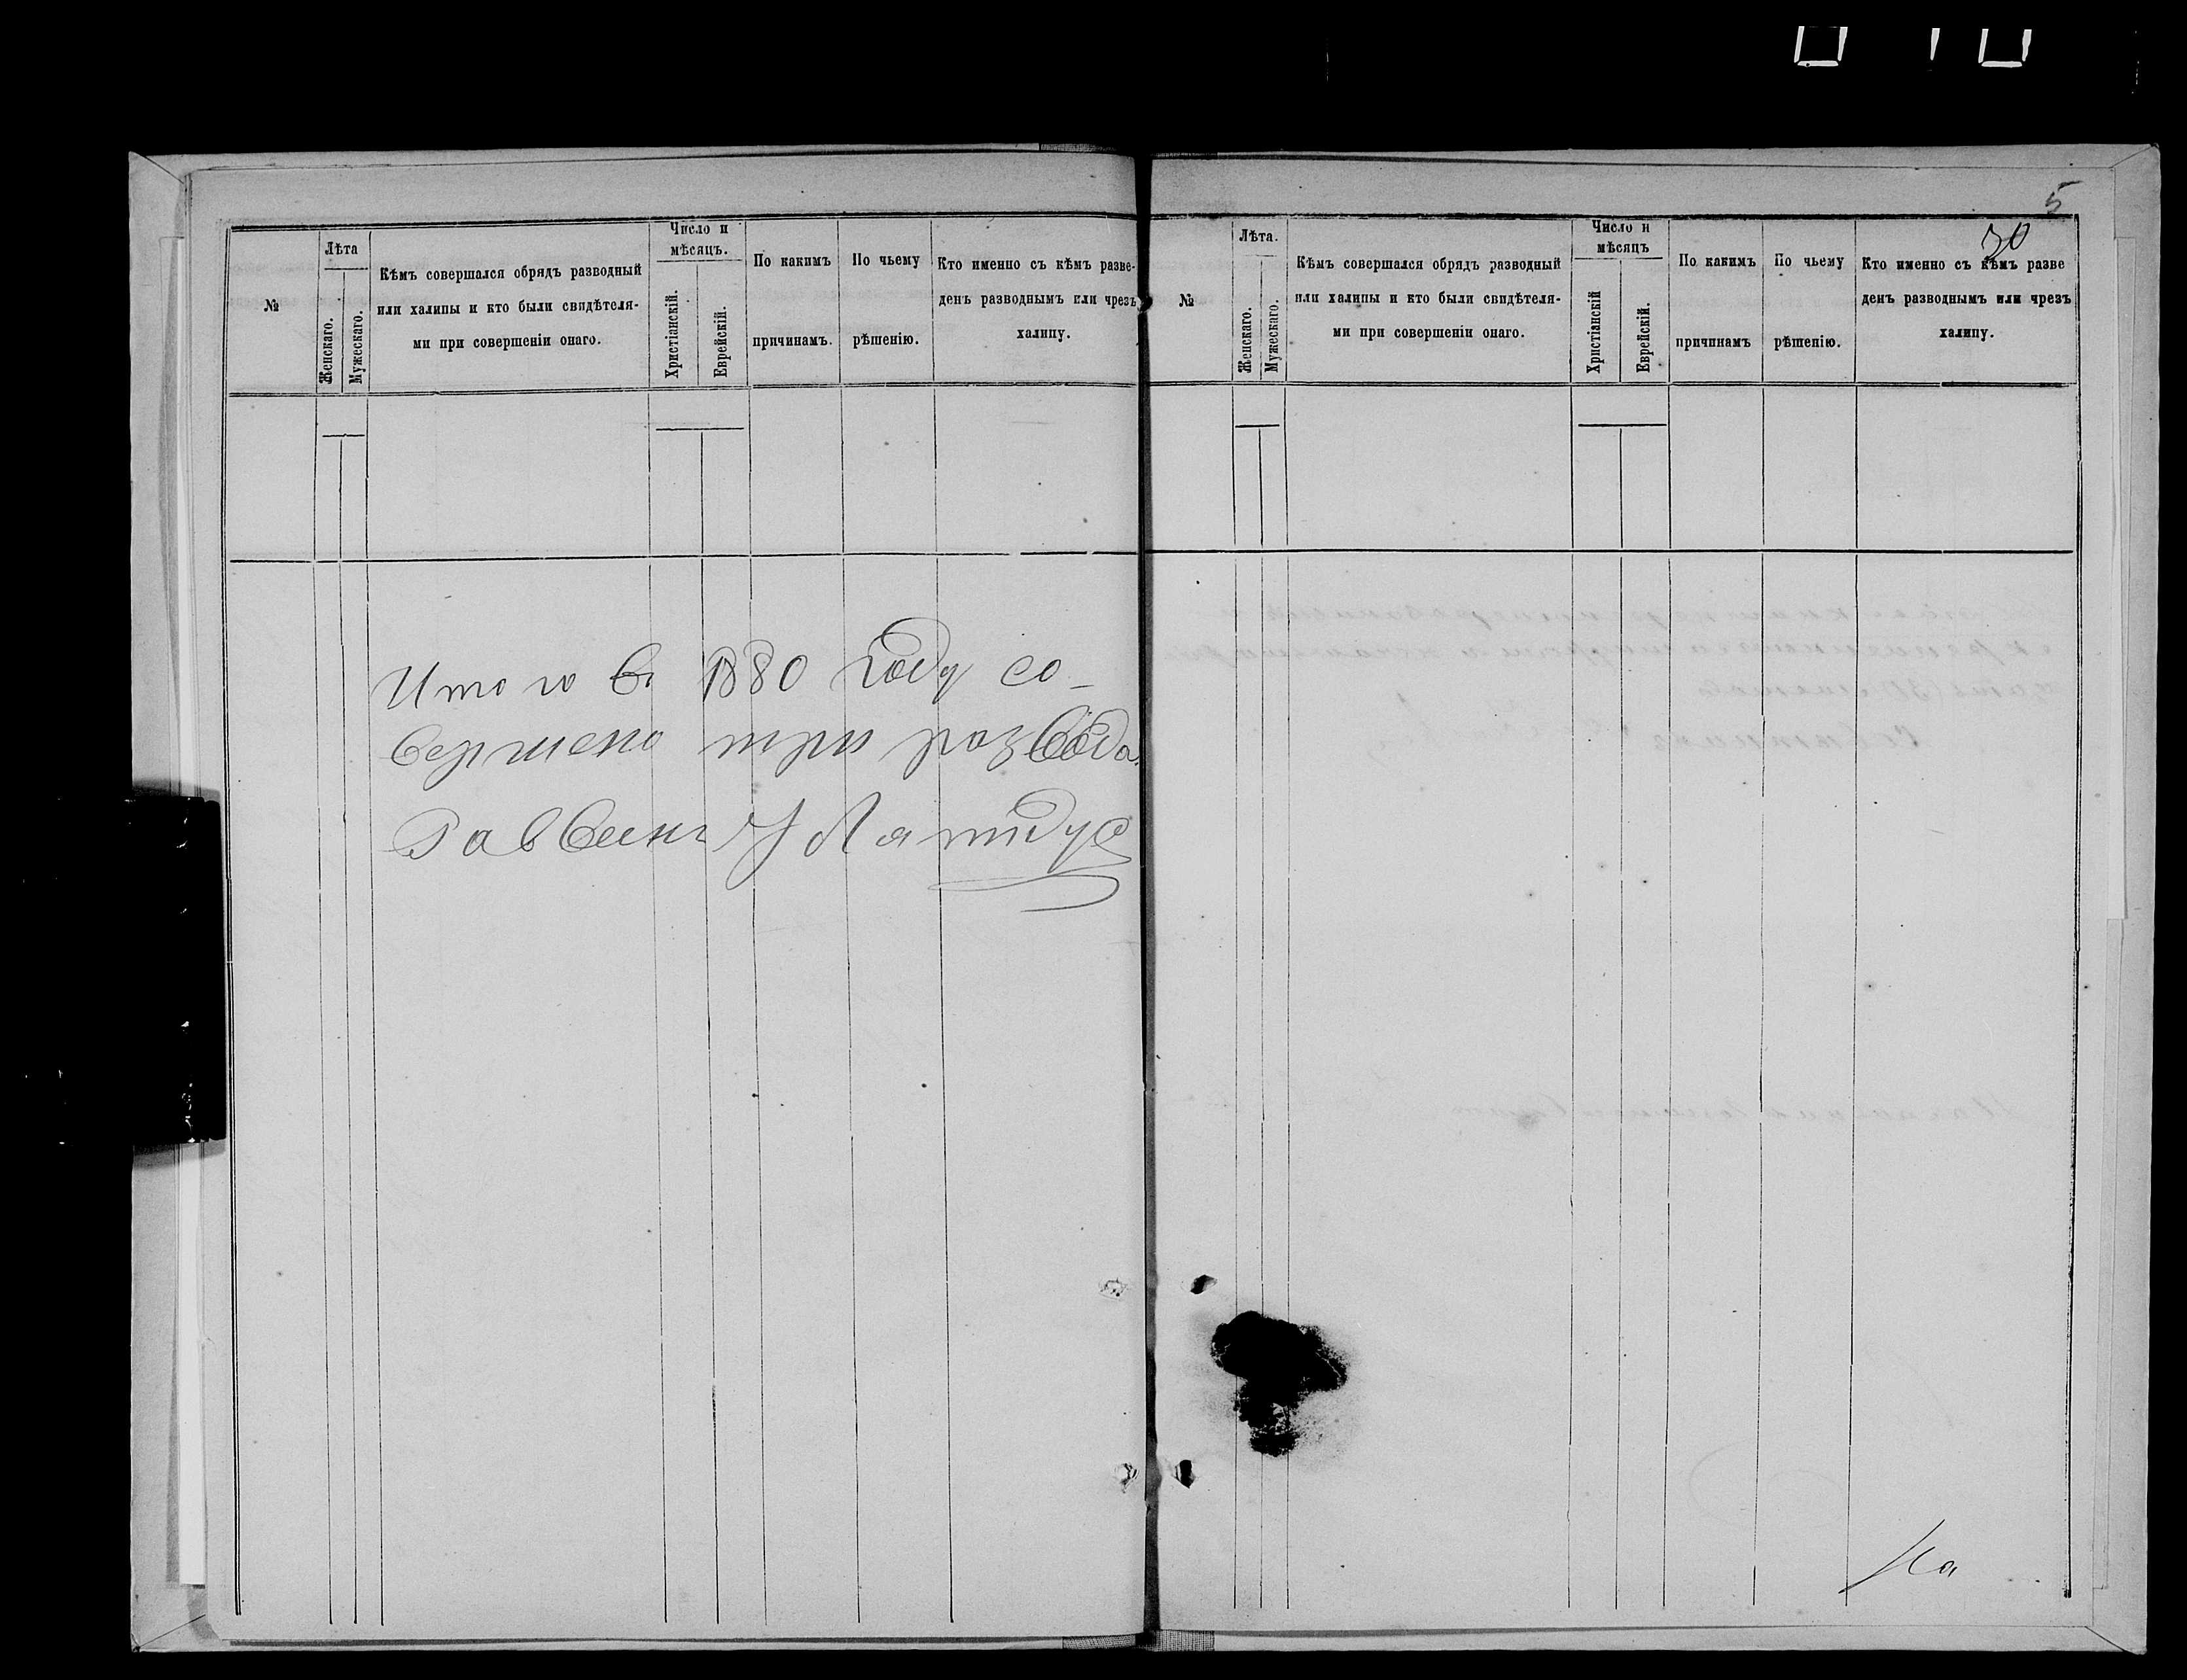 5
30
№
Лѣта
Женскаго.
Мужескаго.
Кѣмъ совершался обрядъ разводный
или халипы и кто были свидѣтеля-
ми при совершеніи онаго.
Число и
мѣсяцъ.
Христіанскій.
Еврейскій.
По какимъ
причинамъ.
По чьему
рѣшенію.
Кто именно съ кѣмъ разве-
денъ разводнымъ или чрезъ
халипу.
Итого въ 1880 году со-
вершено три развода.
Раввинъ
№
Лѣта.
Женскаго.
Мужескаго.
Кѣмъ совершался обрядъ разводный
или халипы и кто были свидѣтеля-
ми при совершеніи онаго.
Число и
мѣсяцъ
Христіанскій
Еврейскій.
По какимъ
причинамъ
По чьему
рѣшенію.
Кто именно съ кѣмъ разве
денъ разводнымъ или чрезъ
халипу.